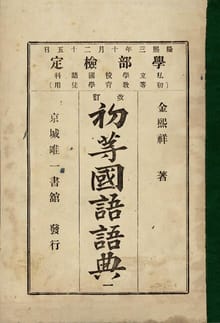 隆熙三年十月二十五日
學部檢定
私立學校國語科
初等教育學徒用
金熙祥 著
改訂
初等國語語典 一
京城唯一書舘 發行